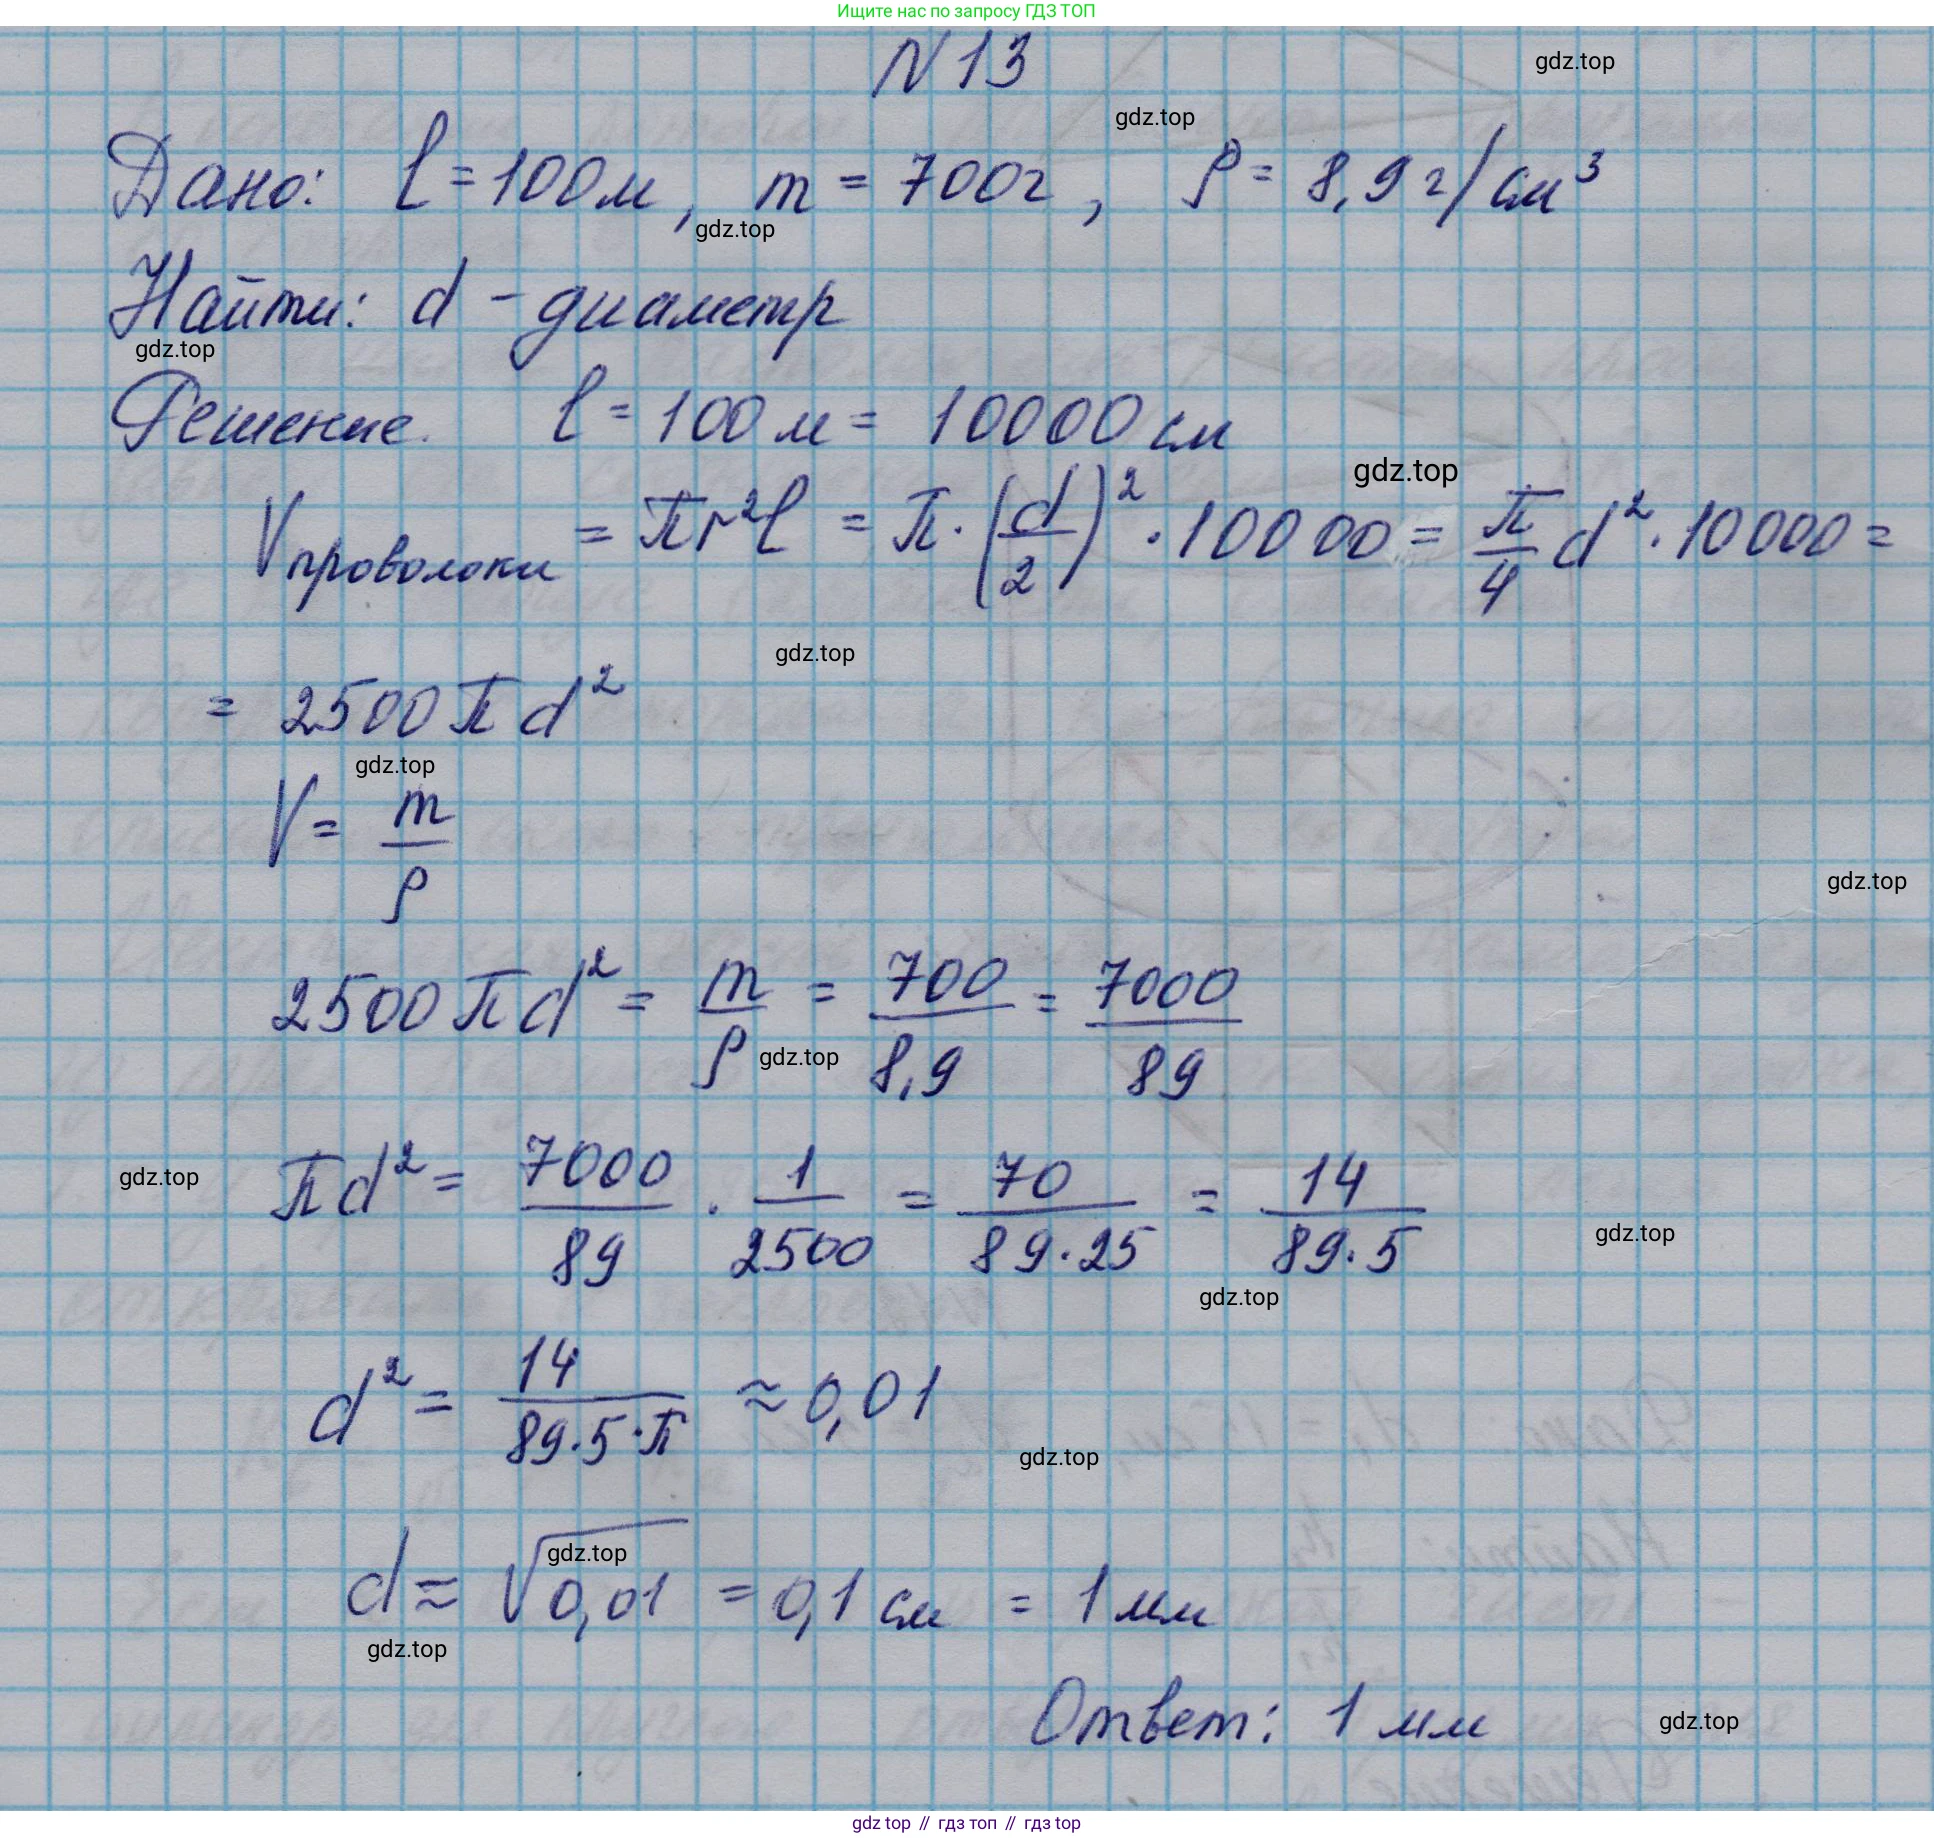 Ищите нас по запросу ГДЗ ТОП
N 13
gdz.top
gdz.top
Дано: l = 100 м, m = 700 г, ρ = 8,9 г/см³
gdz.top
Найти: d - диаметр
gdz.top
Решение. l = 100 м = 10000 см
gdz.top
Vпроволоки = πr²l = π · (d/2)² · 10000 = π/4 d² · 10000 =
gdz.top
= 2500 π d²
gdz.top
V = m/ρ
gdz.top
2500 π d² = m/ρ = 700/8,9 = 7000/89
gdz.top
πd² = 7000/89 · 1/2500 = 70/89·25 = 14/89·5
gdz.top
gdz.top
gdz.top
d² = 14/89·5·π ≈ 0,01
gdz.top
d ≈ √0,01 = 0,1 см = 1 мм
gdz.top
gdz.top
Ответ: 1 мм
gdz.top
gdz top // гдз топ // гдз top